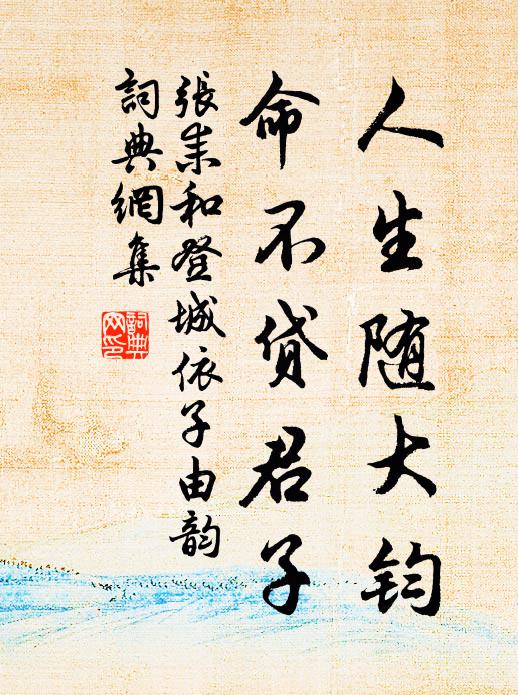 人生随大钧
命不贷君子
張耒和登城依子由韵
詞典網集
詞典網印